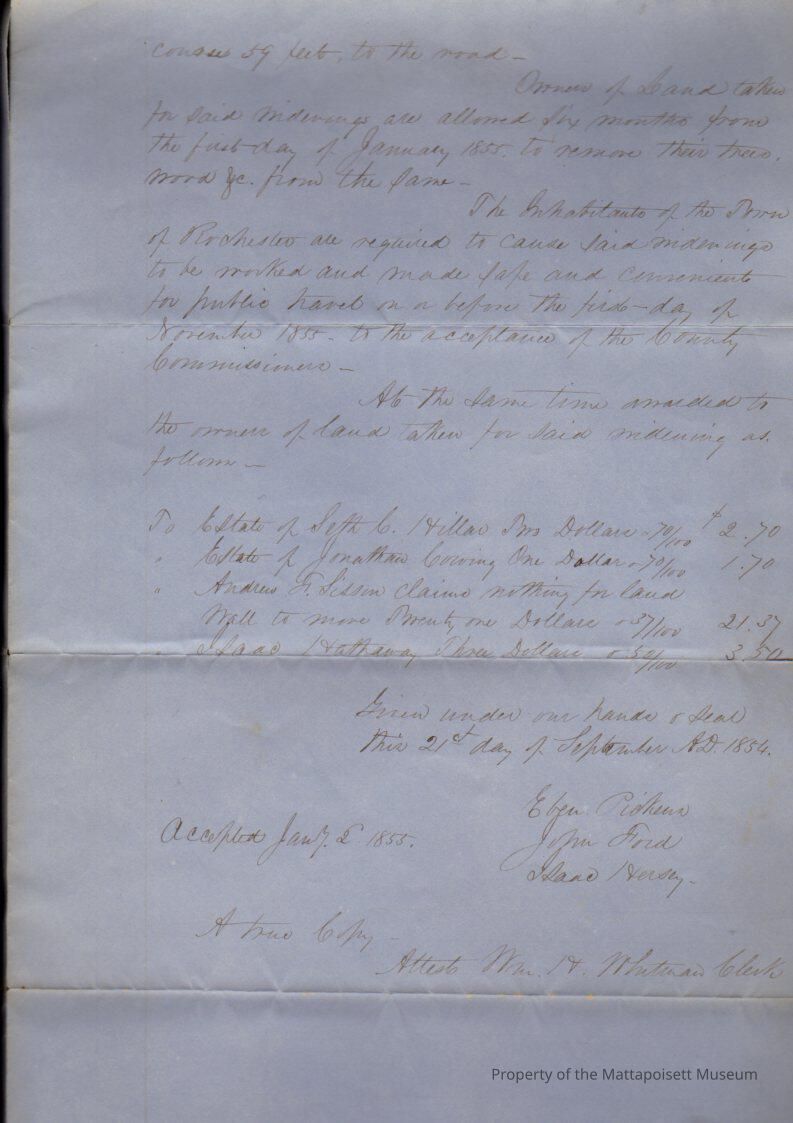 course 59 feet, to the road -
Owners of Land taken
for said widenings are allowed six months from
the first day of January 1855. to remove their trees,
wood &c. from the same -
The Inhabitants of the Town
of Rochester are required to cause said widenings
to be worked and made safe and convenient
for public travel on or before the first day of
November 1855. to the acceptance of the County
Commissioners -
At the same time awarded to
the owners of land taken for said widening as
follows -
To Estate of Seth C. Hillar Two Dollars - 70/100 $ 2.70
" Estate of Jonathan Cowing One Dollar - 70/100 1.70
" Andrew F. Sisson claims nothing for land
Wall to move Twenty one Dollars & 37/100 21.37
" Isaac Hathaway Three Dollars & 50/100 3.50
Given under our hands & seal
this 21st day of September A.D. 1854.
Eben Pickens
Accepted Jany. 2d 1855.
John Ford
Isaac Hersey.
A true Copy -
Attest Wm. H. Whitman Clerk
Property of the Mattapoisett Museum